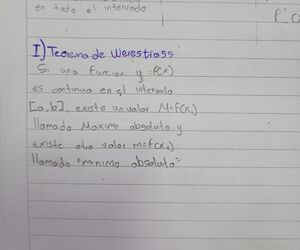 en todo el intervalo
f'(
I) Teorema de Werestrass
Si una funcion y=f(x)
es continua en el intervalo
[a,b], existe un valor M=f(x₁)
llamado Maximo absoluto y
existe otro valor m=f(x₂)
llamado "minimo absoluto"